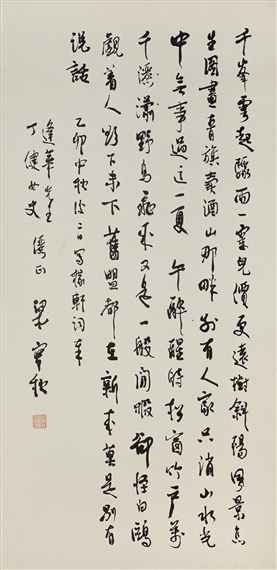 千峯雲起驟雨一霎兒價更遠樹斜陽風景怎
生圖畫青旗賣酒山那畔別有人家只消山水光
中無事過這一夏 午醉醒時松窗竹戶萬
千瀟灑野鳥飛來又是一般閒暇卻怪白鷗
覷着人欲下未下舊盟都在新來莫是別有
說話
乙卯中秋後二日寫稼軒詞奉
逢華先生
丁健女史 儷正 梁實秋